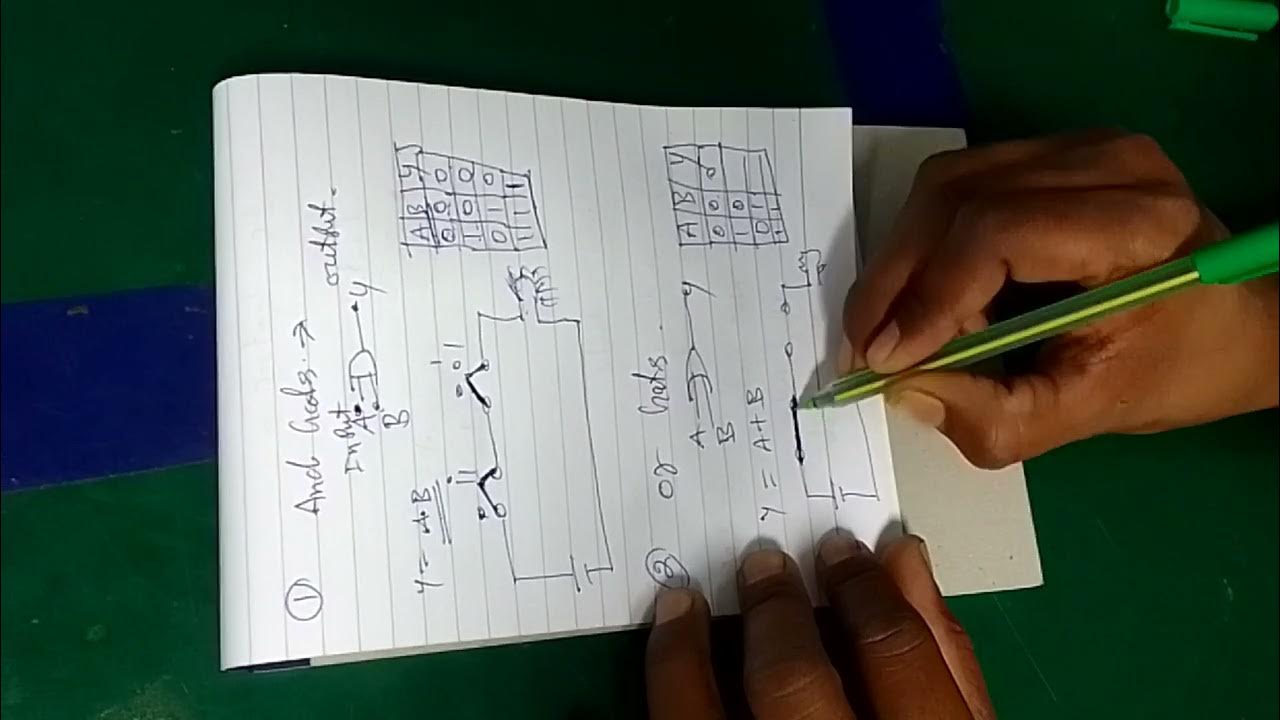 ① And Gats. →
Input output.
A Y
B
A B Y
0 0 0
1 0 0
0 1 0
1 1 1
Y = A.B
② or Gats.
A Y
B
A B Y
0 0 0
1 0
0 1
1 1
Y = A+B